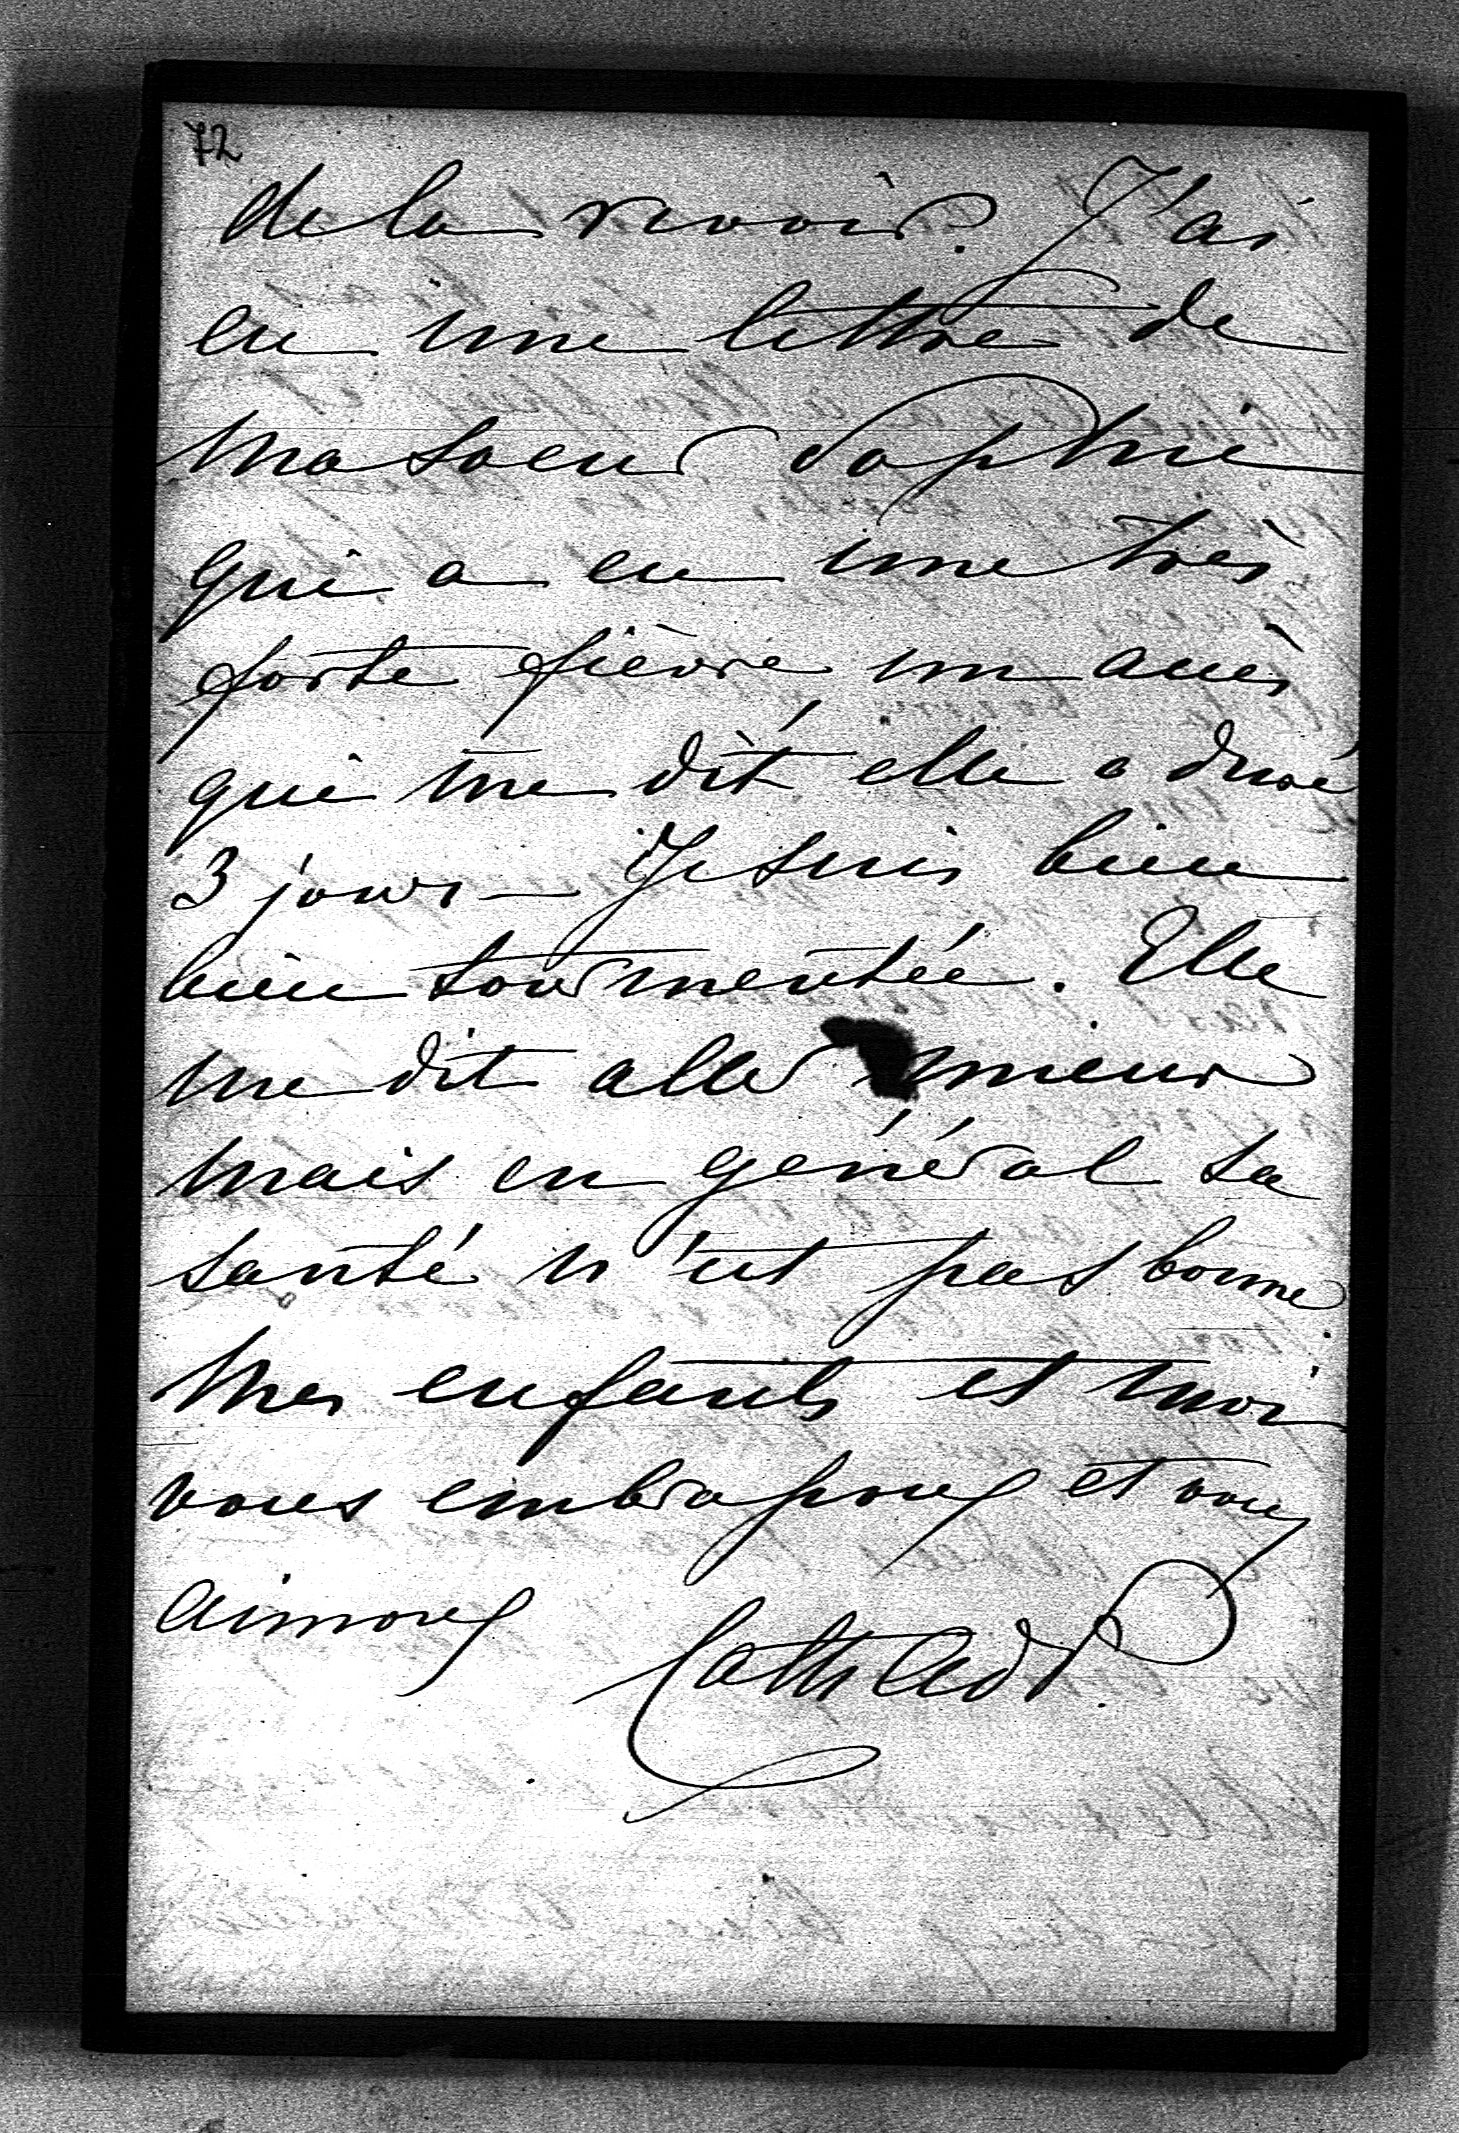 72
de la revoir ? J'ai
eu une lettre de
ma soeur Sophie
qui a eu une très
forte fièvre, un accès
qui me dit elle a duré
3 jours — Je suis bien
bien tourmentée. Elle
me dit aller mieux
mais en général sa
santé n'est pas bonne.
Mes enfants et moi
vous embrassons et vous
aimons